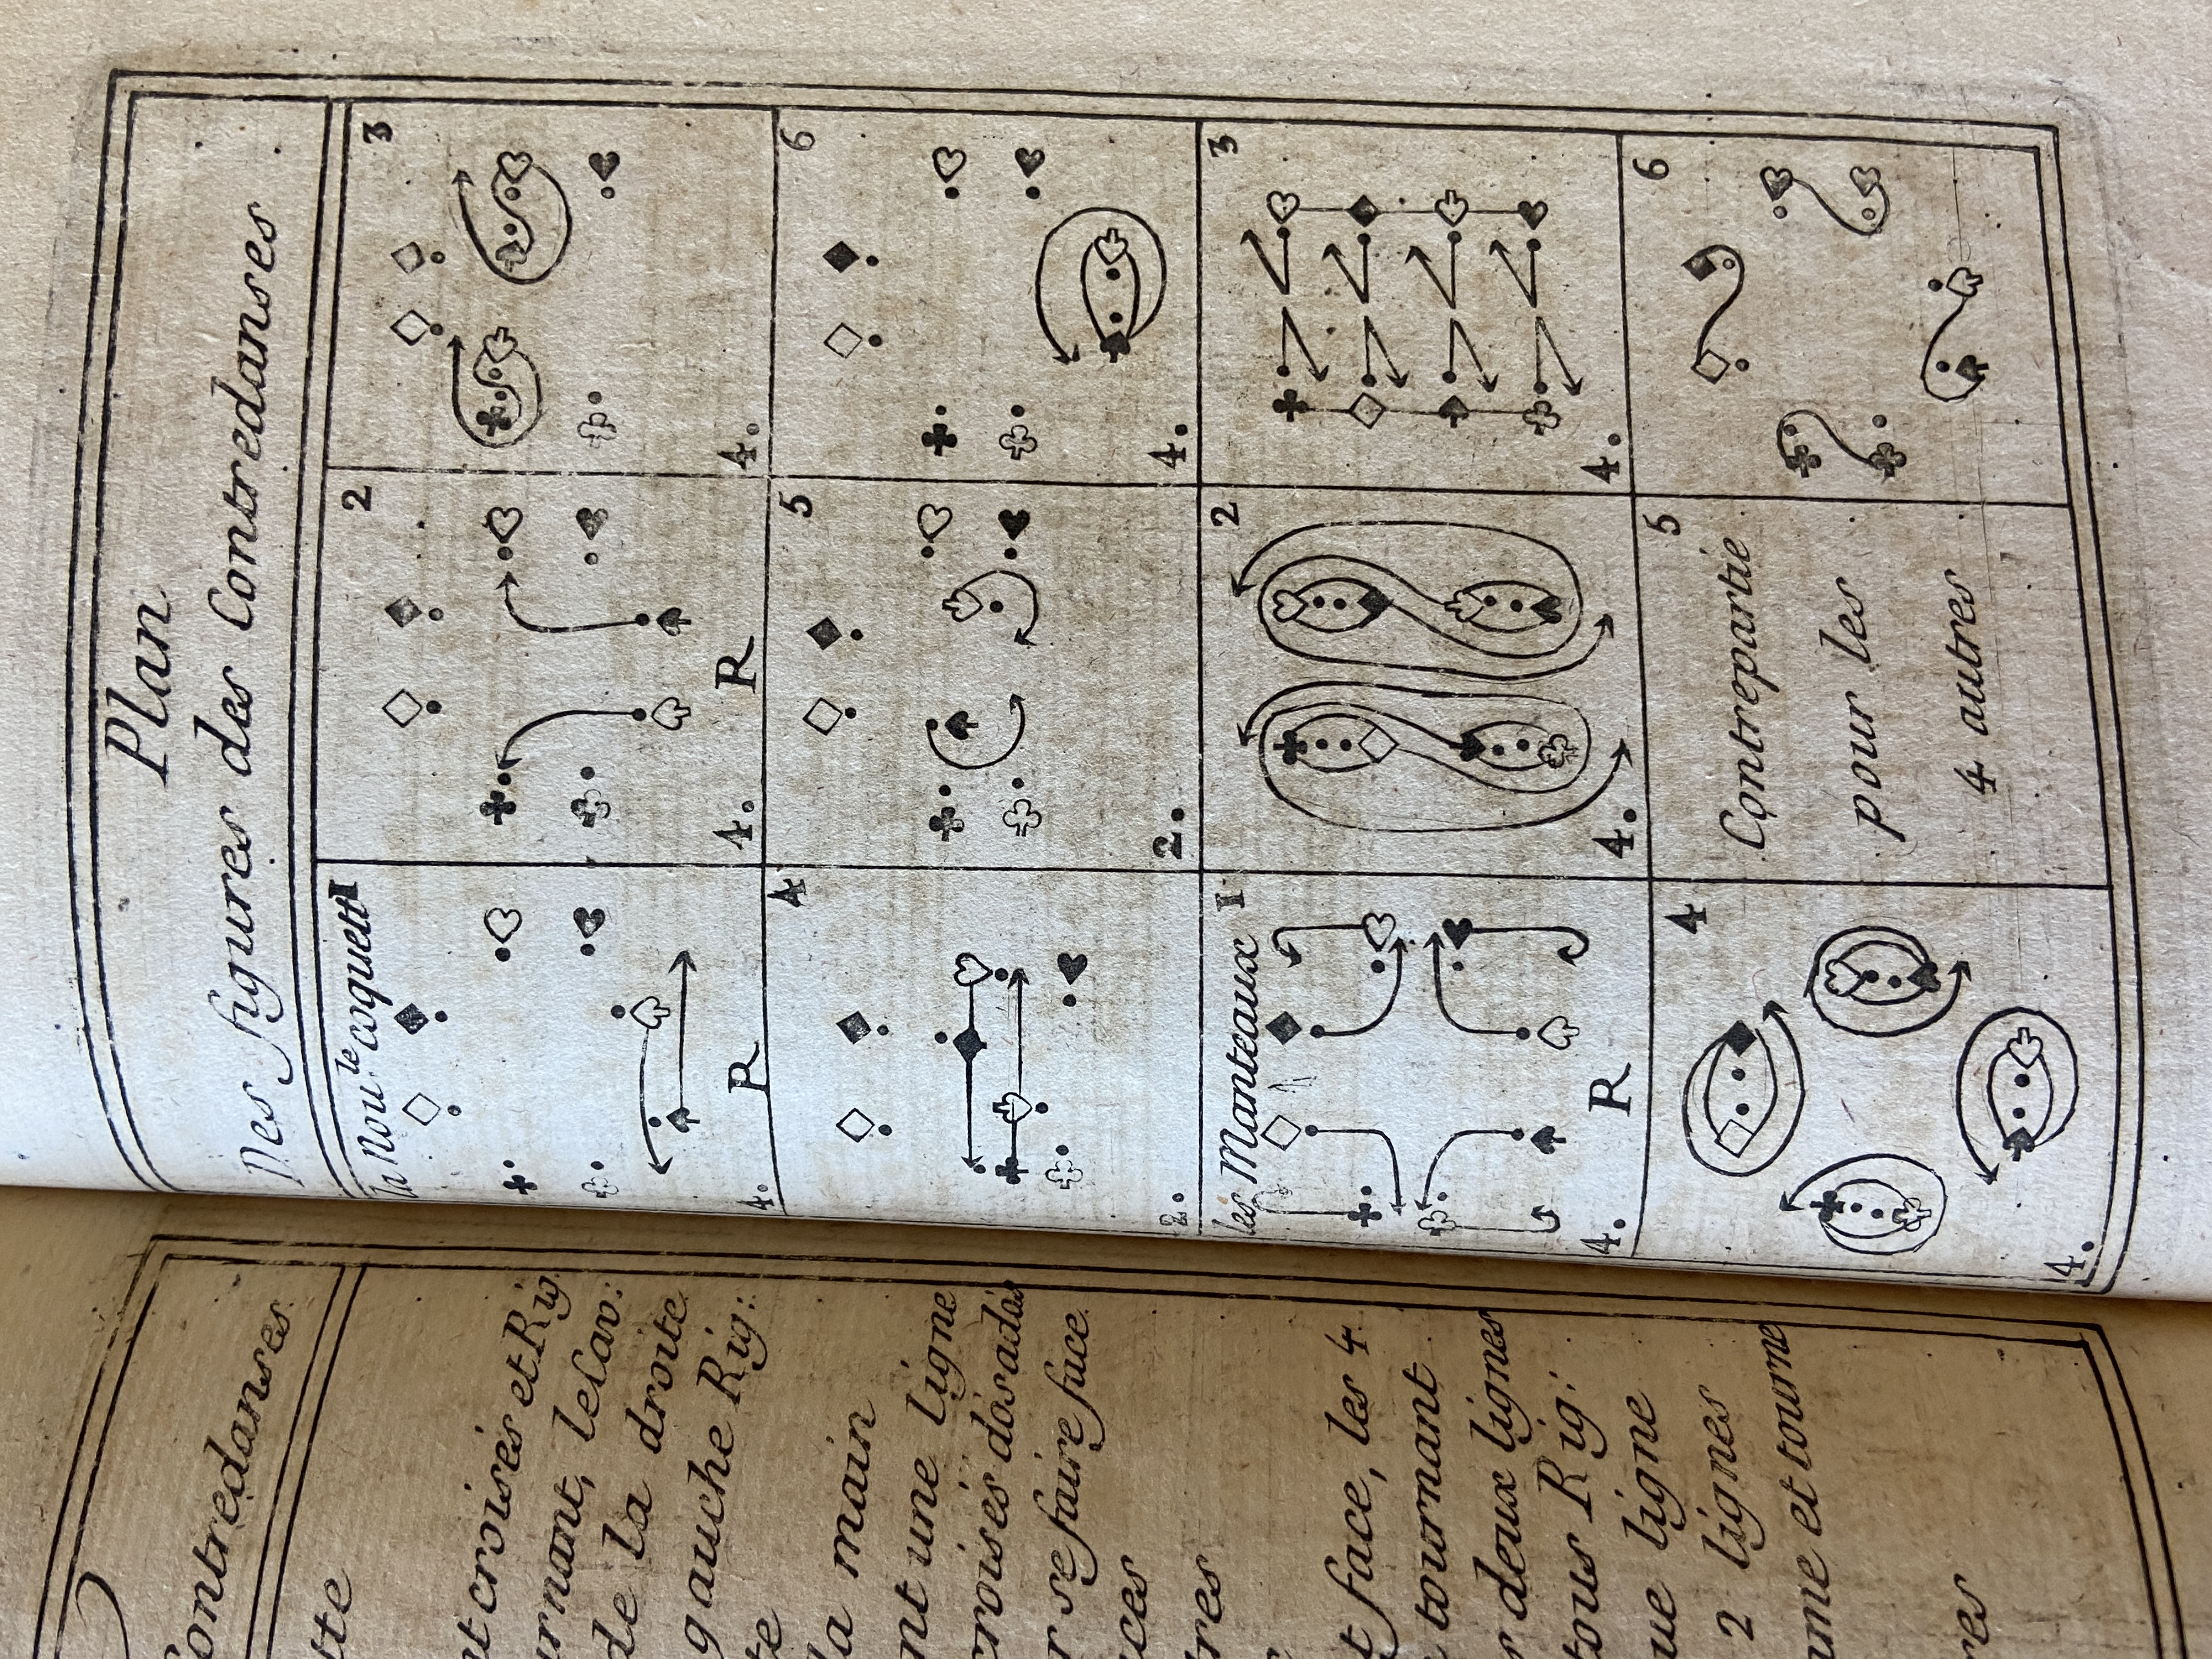 Contredanses
tte
nt croisés et Rig
urnant, le Cav:
de la droite
gauche Rig:
te
la main
nt une ligne
croisés dosados
r se faire face
ces
tres
t face, les 4
tournant
r deux lignes
tous Rig:
ue ligne
2 lignes
ame et tourne
res
Plan
Des figures des Contredanses
la Nou.le coquette
1
4.
R
2
4.
R
3
4.
4
2.
5
2.
6
4.
les Manteaux
1
4.
R
2
4.
3
4.
4
4.
5
Contrepartie
pour les
4 autres
6